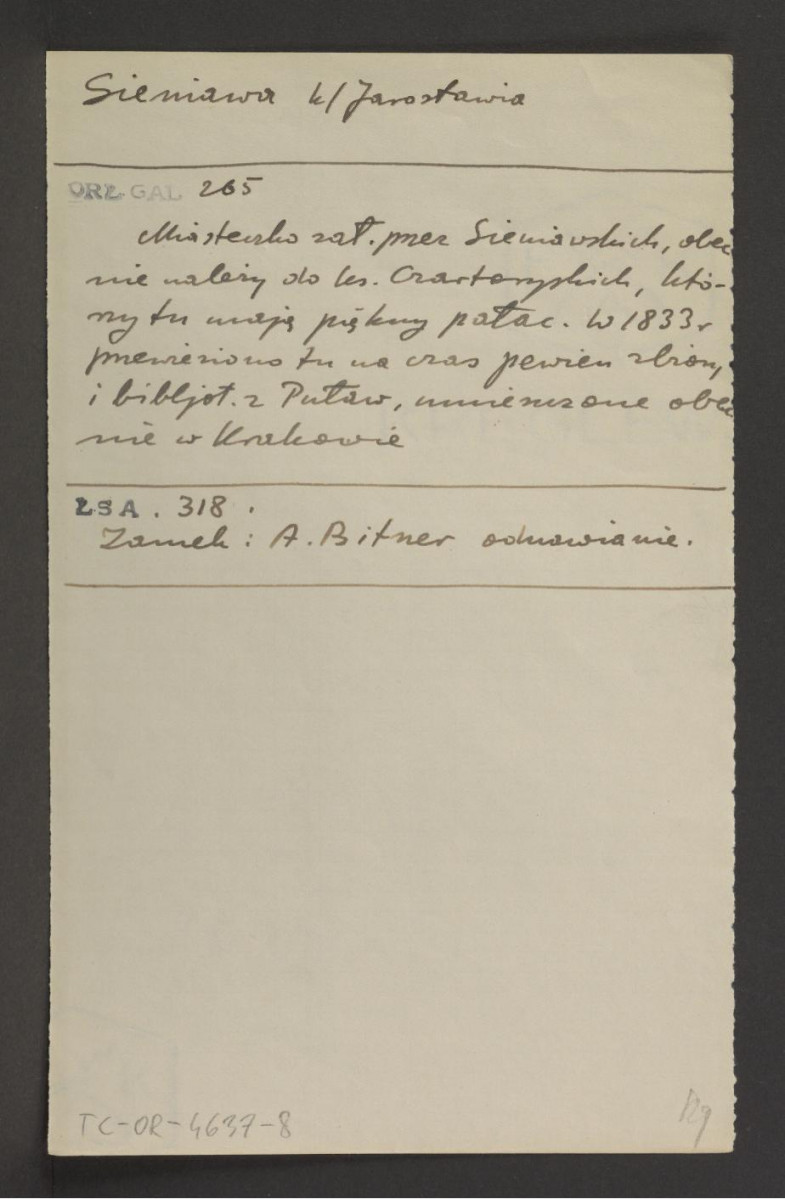 Sieniawa k/Jarosławia
ORŁ GAL 265
Miasteczko zał. przez Sieniawskich, obec
nie należy do ks. Czartoryskich, któ-
rzy tu mają piękny pałac. W 1833 r
przewieziono tu na czas pewien zbiory
i bibljot. z Puław, umieszczone obec
nie w Krakowie
ŁSA. 318.
Zamek: A. Bitner odnawianie.
TC-OR-4637-8
129